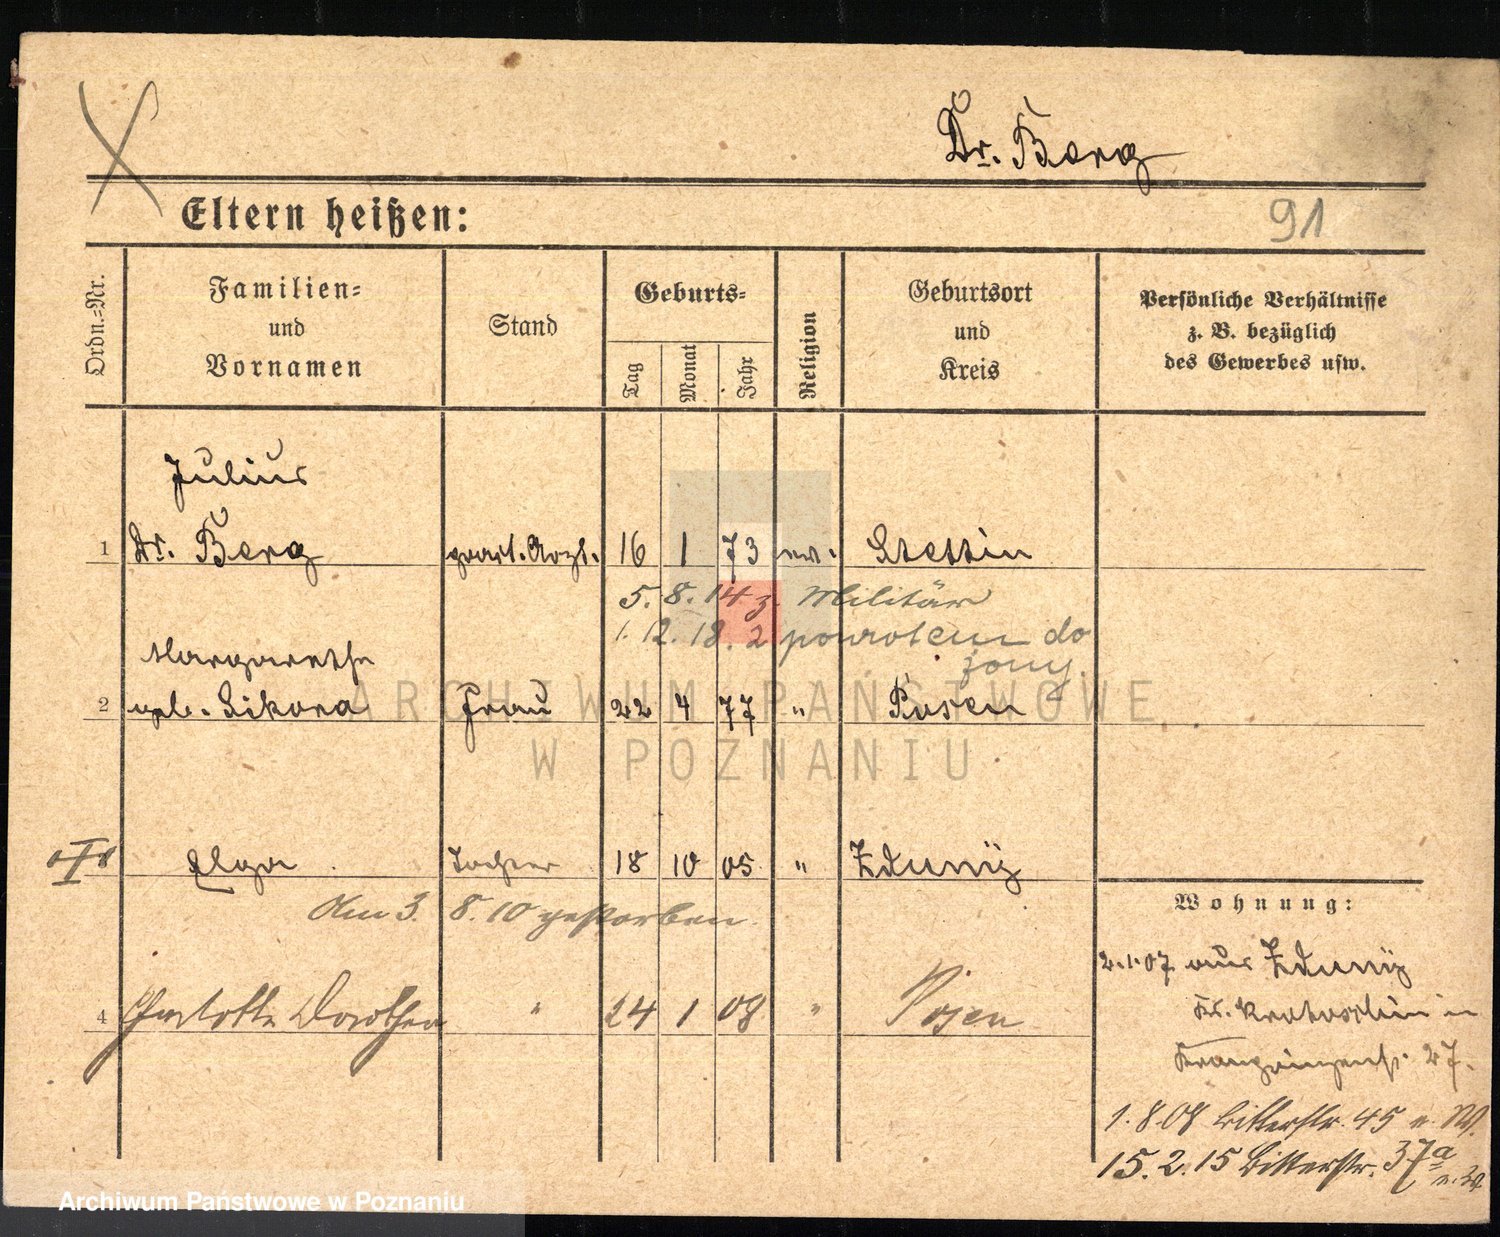 Dr. Berg
Eltern heißen:
91
Ordn.=Nr.
Familien=
und
Vornamen
Stand
Geburts=
Tag
Monat
Jahr
Religion
Geburtsort
und
Kreis
Persönliche Verhältnisse
z. B. bezüglich
des Gewerbes usw.
Julius
1 Dr. Berg prakt. Arzt. 16 1 73 ev. Stettin
5. 8. 14 z. Militär
1. 12. 18. z powrotem do
żony.
Margarethe
2 geb. Sikora Frau 22 4 77 " Posen
Elga Tochter 18 10 05 " Zduny
Am 3. 8. 10 gestorben.
4 Charlotte Dorothea " 24 1 08 " Posen
Wohnung:
2.1.07 aus Zduny
Kr. Krotoschin in
Kronprinzenstr. 27.
1. 8. 08 Bitterstr. 45 n. W.
15. 2. 15 Bitterstr. 37a
ARCHIWUM PAŃSTWOWE
W POZNANIU
Archiwum Państwowe w Poznaniu